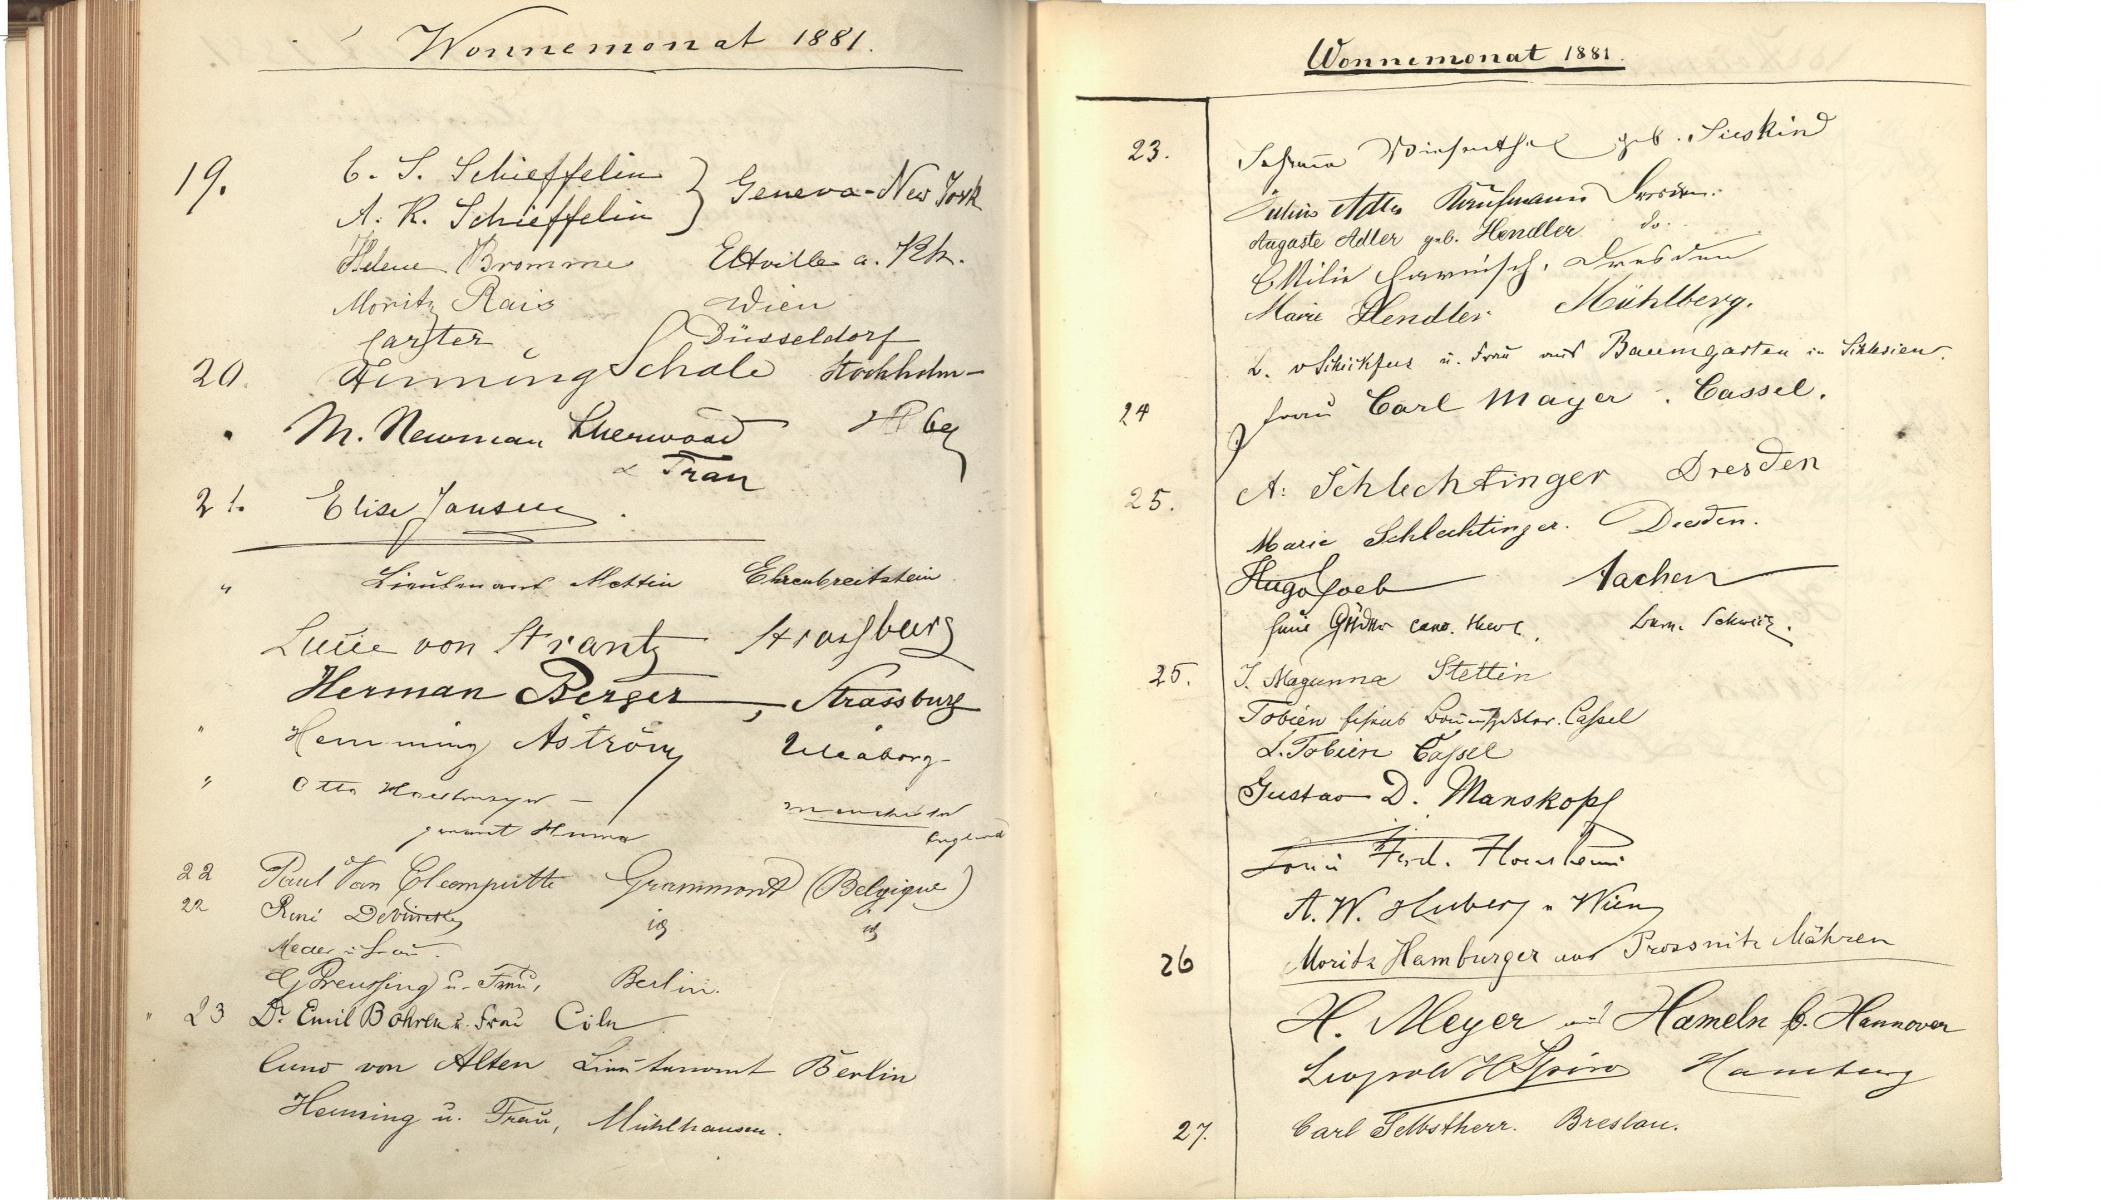 Wonnemonat 1881.
19. C. S. Schieffelin
A. R. Schieffelin } Geneva-New York
Helene Bromme Eltville a. Rh.
Moritz Rais Wien
Carster Düsseldorf
20. Henning Schale Stockholm
M. Newman Sherwood
& Frau
21. Elise Jansen.
" Lieutenant Mettin Ehrenbreitstein
Lucie von Strantz Strassburg
Herman Berger, Strassburg
" Hemming Åström Uleåborg
" Otto
genannt
England
22 Paul Van Cleemputte Grammont (Belgique)
22 René id id
Meder u. Frau.
G Preussing u. Frau, Berlin.
" 23 Dr. Emil Bohren u. Frau Cöln
Cuno von Alten Lieutenant Berlin
Henning u. Frau, Mühlhausen.
Wonnemonat 1881.
23. Johanna Wiesenthal geb. Sieskind
Julius Adler Kaufmann Dresden.
Auguste Adler geb. Hendler do.
Emilie Harnisch, Dresden
Marie Hendler Mühlberg.
L. v Schickfus u. Frau aus Baumgarten in Schlesien.
24 Frau Carl Mayer. Cassel.
25. A. Schlechtinger Dresden
Marie Schlechtinger. Dresden.
Hugo Loeb Aachen
Schweiz.
25. J. Magunna Stettin
Tobien Cassel
L. Tobien Cassel
Gustav D. Manskopf
Ferd.
A. W. Wien
26 Moritz Hamburger aus Prossnitz Mähren
H. Meyer aus Hameln b. Hannover
Leopold H Spiro Hamburg
27. Carl Selbstherr. Breslau.